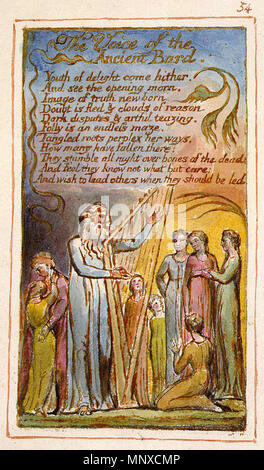 54
The Voice of the
Ancient Bard.
Youth of delight come hither,
And see the opening morn,
Image of truth new born.
Doubt is fled & clouds of reason
Dark disputes & artful teazing.
Folly is an endless maze,
Tangled roots perplex her ways,
How many have fallen there!
They stumble all night over bones of the dead:
And feel they know not what but care;
And wish to lead others when they should be led.
alamy
Image ID: MNXCMP
www.alamy.com